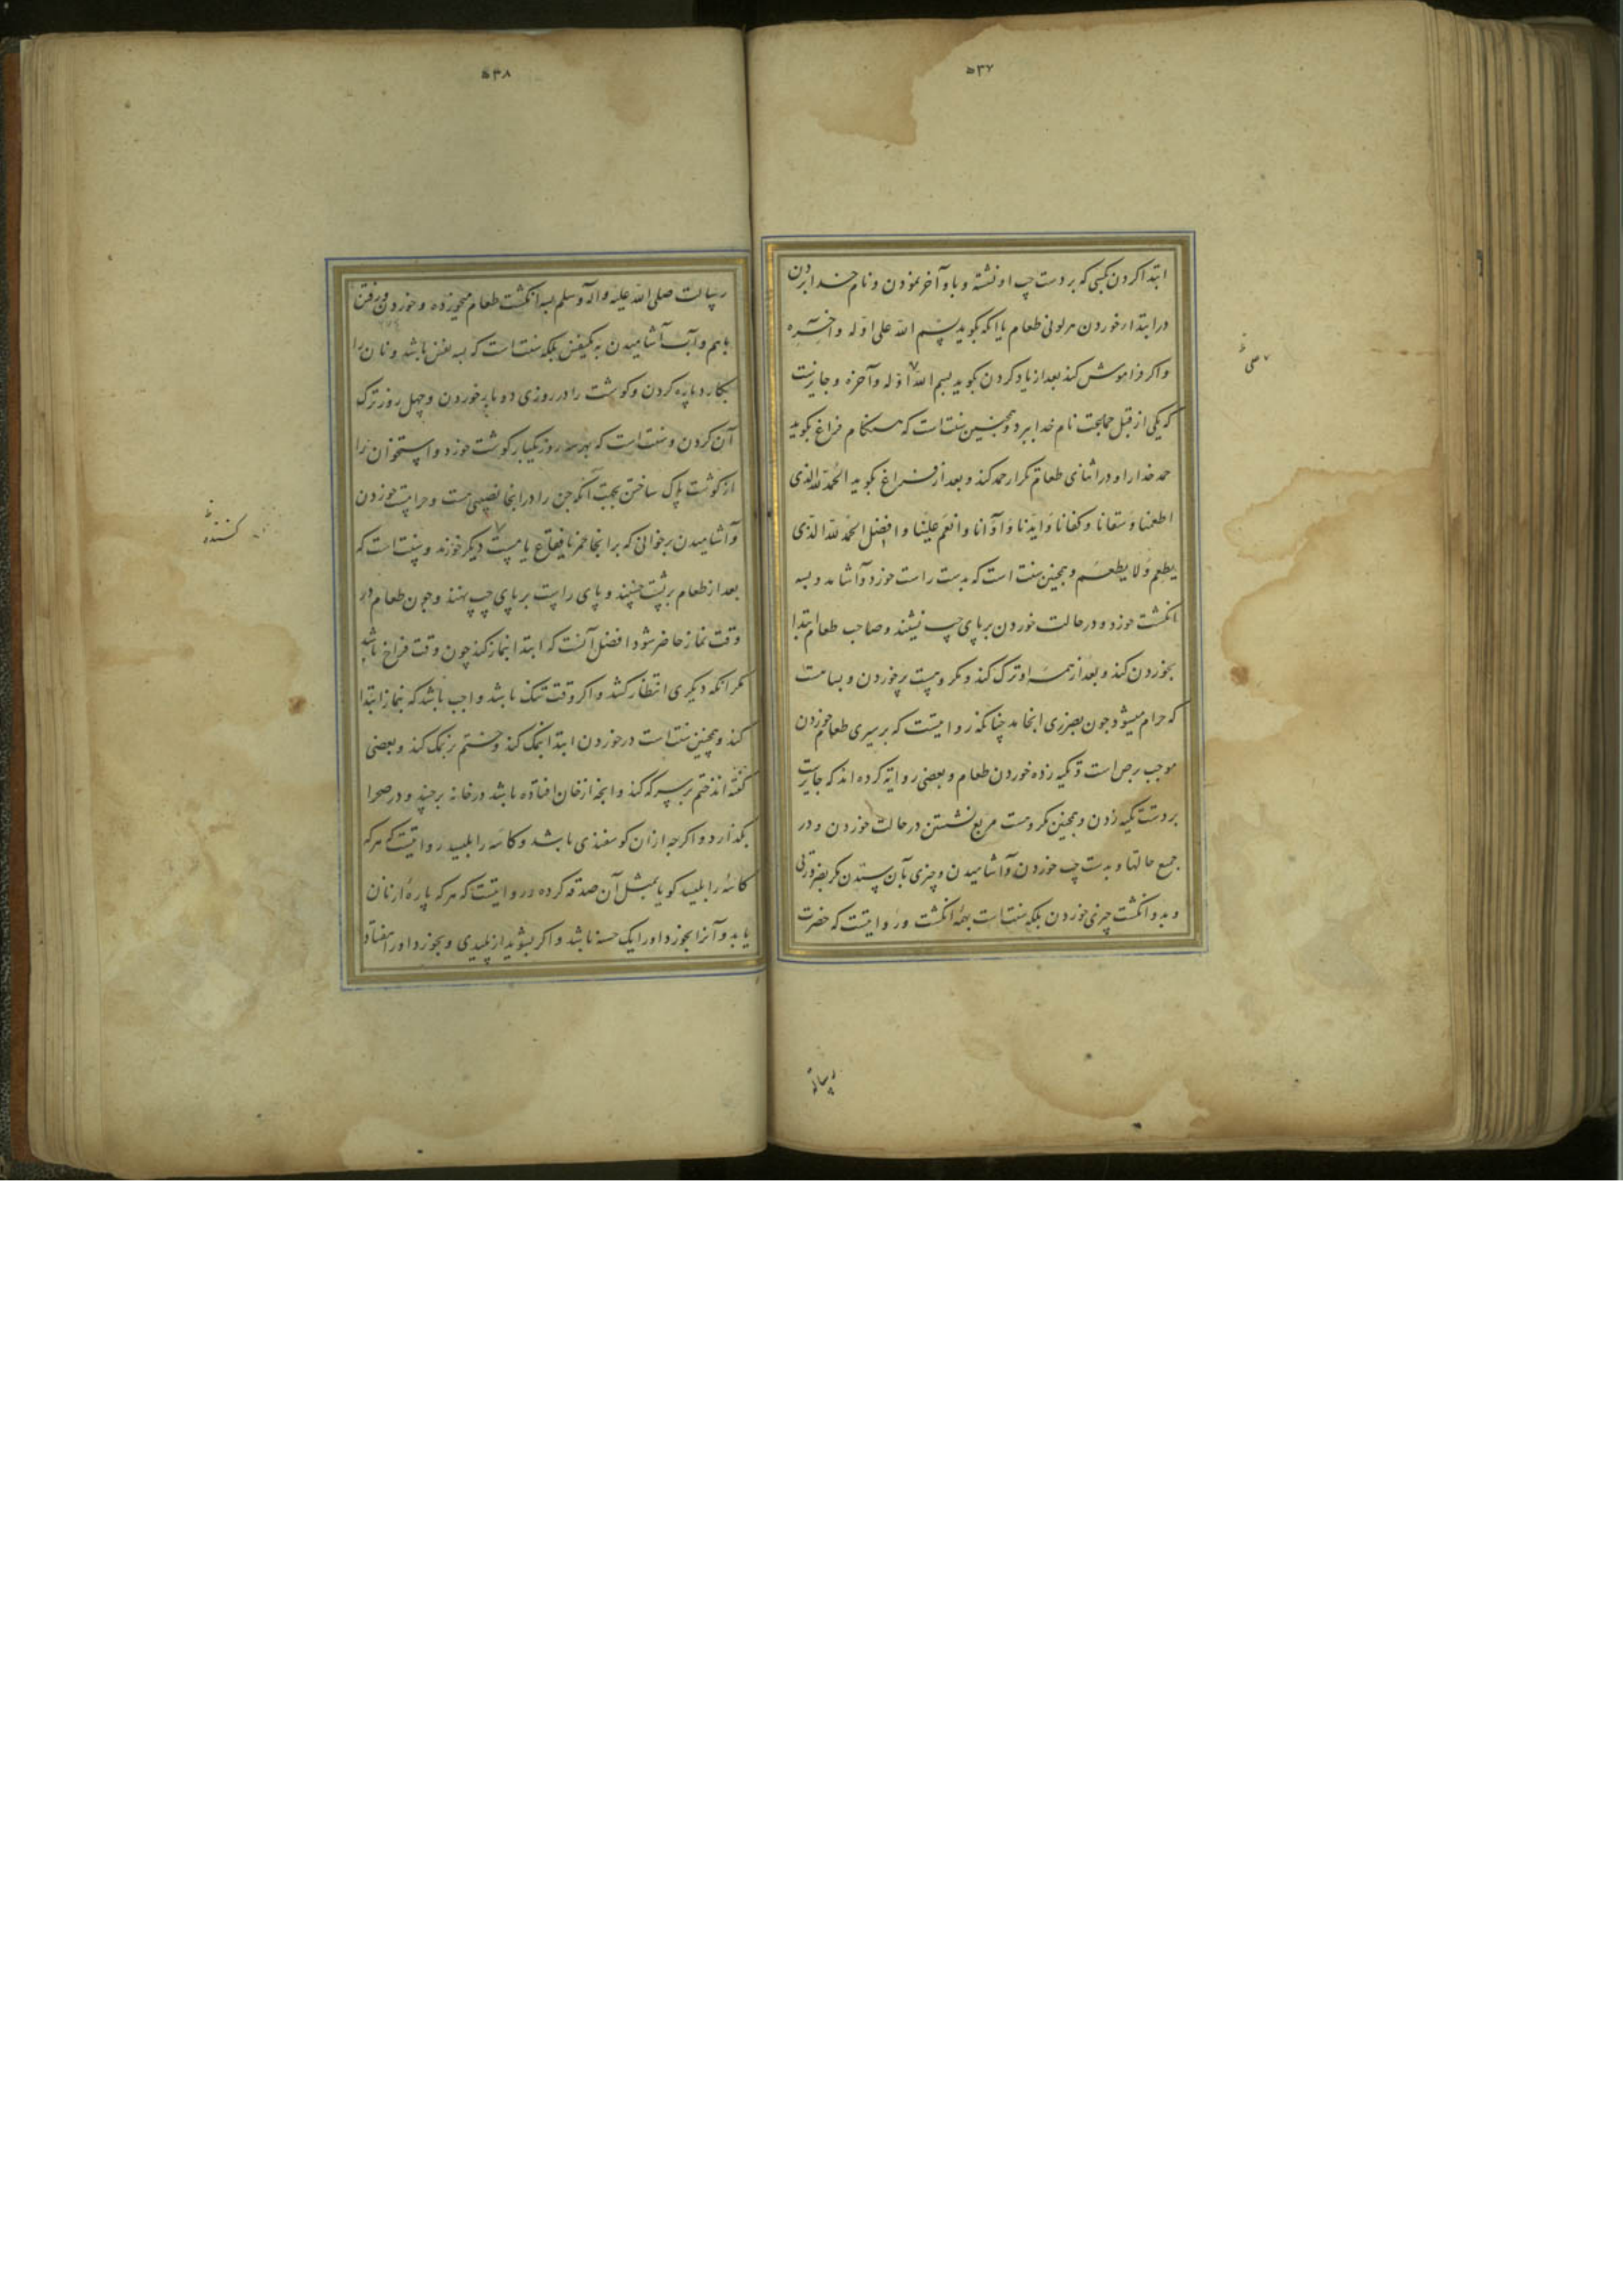 ۵۳۷
ابتدا کردن بکسی که بر دست چپ او نشسته و باو آخر نمودن و نام خدا بردن
در ابتدا خوردن هر لونی طعام یا انکه بکوید بسم الله علی اوله و آخره
و اکر فراموش کند بعد از یاد کردن بکوید بسم الله اوله و آخره و جایزست
علی
که یکی از قبل جماعت نام خدا ببرد و همچنین سنت است که هنکام فراغ بکوید
حمد خدا را و در اثنای طعام تکرار حمد کند و بعد از فراغ بکوید الحمد لله الذی
اطعمنا و سقانا و کفانا و ایدنا و آوانا و انعم علینا و افضل الحمد لله الذی
یطعم و لا یطعم و همچنین سنت است که بدست راست خورد و آشامد و بسه
انکشت خورد و در حالت خوردن بر پای چپ نشیند و صاحب طعام ابتدا
بخوردن کند و بعد از همه او ترک کند و مکروهست پرخوردن و بسا هست
که حرام میشود چون بضرری انجامد چنانکه روایتست که بر سیری طعام خوردن
موجب برص است و تکیه زده خوردن طعام و بعضی روایة کرده اند که جایزست
بر دست تکیه زدن و همچنین مکروهست مربع نشستن در حالت خوردن و در
جمیع حالتها و بدست چپ خوردن و آشامیدن و چیزی بآن ستدن مکر بضرورتی
و بدو انکشت چیزی خوردن بلکه سنت است بهمهٔ انکشت و روایتست که حضرت
رسالت
۵۳۸
رسالت صلی الله علیه و آله و سلم بسه انکشت طعام میخورده و خوردن و رفتن
باهم و آب آشامیدن بیکنفس بلکه سنت است که بسه نفس باشد و نان را
بکارد پاره کردن و کوشت را در روزی دو بار خوردن و چهل روز ترک
آن کردن و سنت است که بهر سه روز یکبار کوشت خورد و استخوان را
از کوشت پاک ساختن بجهت آنکه جن را در انجا نصیبی هست و حرامست خوردن
و آشامیدن بر خوانی که بر انجا خمر یا فقاع یا مست دیکر خورند و سنت است که
کننده
بعد از طعام بر پشت خسپند و پای راست بر پای چپ نهند و چون طعام در
وقت نماز حاضر شود افضل آنست که ابتدا بنماز کند چون وقت فراخ باشد
مکر انکه دیکری انتظار کشد و اکر وقت تنک باشد واجب باشد که بنماز ابتدا
کند و همچنین سنت است در خوردن ابتدا بنمک کند و ختم بر نمک کند و بعضی
کفته اند ختم بر سرکه کند و انچه از خان افتاده باشد در خانه برچیند و در صحرا
بکذارد و اکرچه از ان کوسفندی باشد و کاسه را بلیسد روایتست که هر که
کاسهٔ را بلیسد کویا بمثل آن صدقه کرده و روایتست که هر که پارهٔ از نان
یابد و آنرا بخورد اورا یک حسنه باشد و اکر بشوید از پلیدی و بخورد اورا هفتاد